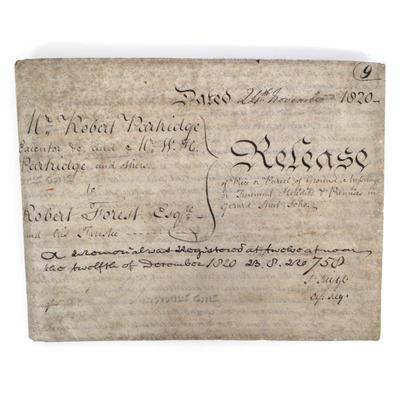 9
Dated 24th November 1820
Mr Robert Partridge
Executor &c and Mr W. H.
Partridge and others
to
Robert Forest Esqre
and his Trustee
Release
of Piece or Parcel of Ground & Messuage
or Tenement Heredits & Premises in
Gerard Street Soho
A Memorial was Registered at twelve at noon
the twelfth of December 1820 B. 8. No 758